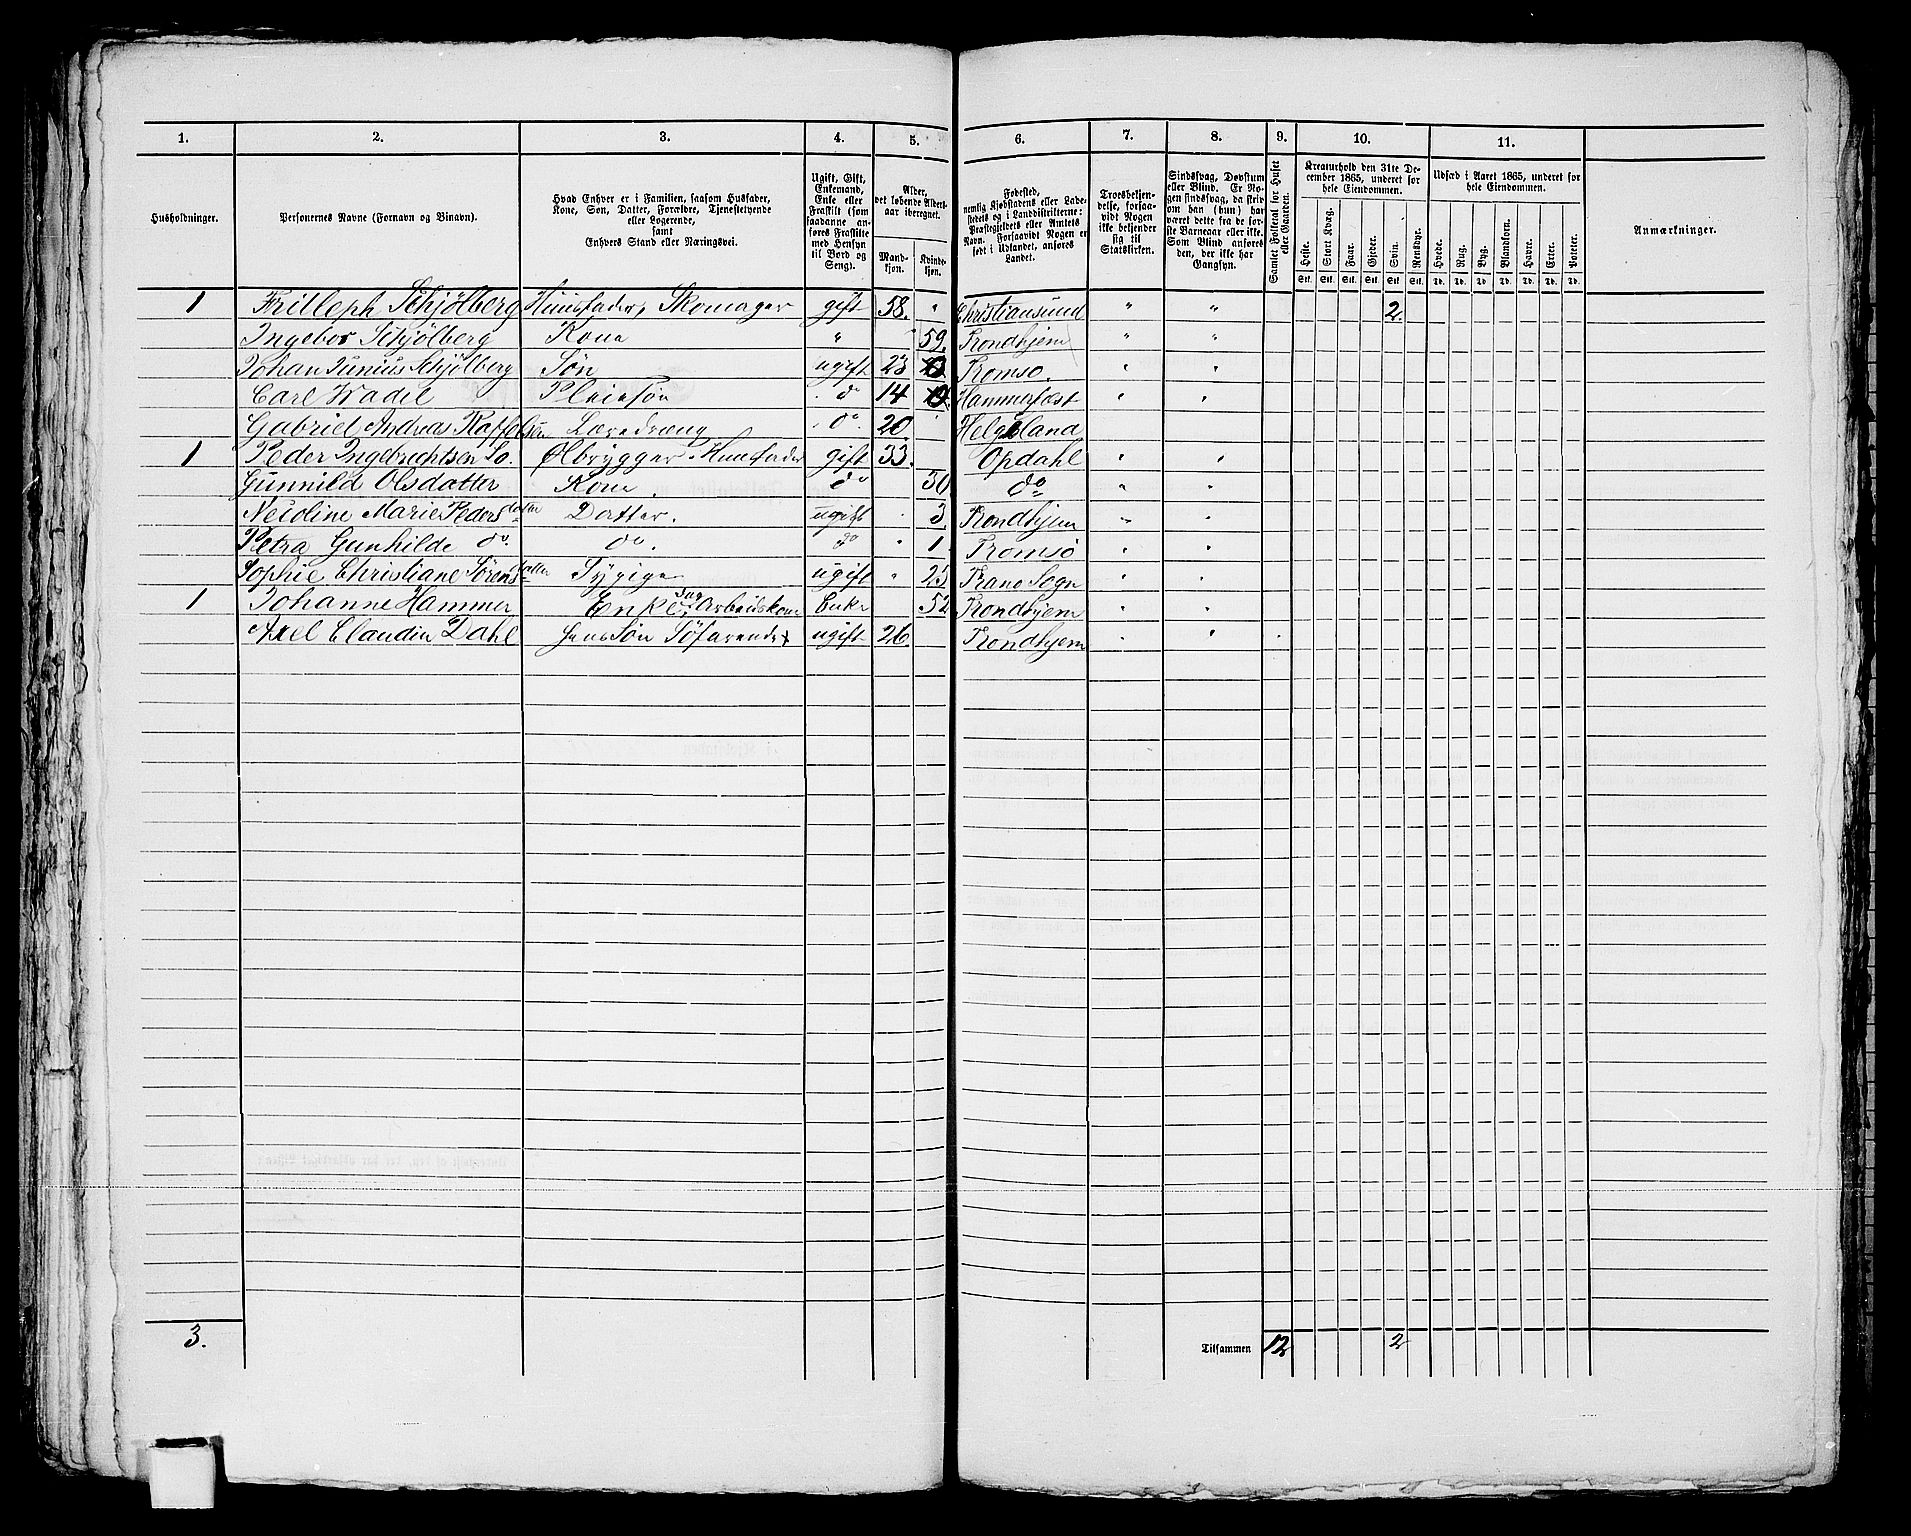 1. 2. 3. 4. 5. 6. 7. 8. 9. 10. 11.
Husholdninger.
Personernes Navne (Fornavn og Binavn).
Hvad Enhver er i Familien, saasom Husfader,
Kone, Søn, Datter, Forældre, Tjenestetyende
eller Logerende,
samt
Enhvers Stand eller Næringsvei.
Ugift, Gift,
Enkemand,
Enke eller
Fraskilt (som
saadanne an-
føres Fraskilte
med Hensyn
til Bord og
Seng).
Alder,
det løbende Alders-
aar iberegnet.
Mand-
kjøn.
Kvinde-
kjøn.
Fødested,
nemlig Kjøbstadens eller Lade-
stedets og i Landdistrikterne:
Præstegjeldets eller Amtets
Navn. Forsaavidt Nogen er
født i Udlandet, anføres
Landet.
Troesbekjen-
delse, forsaa-
vidt Nogen
ikke bekjender
sig til
Statskirken.
Sindssvag, Døvstum
eller Blind. Er No-
gen sindssvag, da skriv
om han (hun) har
været dette fra de før-
ste Barneaar eller ikke.
Som Blind anføres
den, der ikke har
Gangsyn.
Samlet Folketal for Huset
eller Gaarden.
Kreaturhold den 31te De-
cember 1865, underet for
hele Eiendommen.
Heste. Stort Kvæg. Faar. Gjeder. Svin. Rensdyr.
Stk. Stk. Stk. Stk. Stk. Stk.
Udsæd i Aaret 1865, underet for
hele Eiendommen.
Hvede. Rug. Byg. Blandkorn. Havre. Erter. Poteter.
Td. Td. Td. Td. Td. Td. Td.
Anmærkninger.
1 Fritleph Schjølberg Huusfader, Skomager gift 58. " Christiansund " " 2.
Ingebor Schjølberg Kone " " 59. Trondhjem " "
Johan Junius Schjølberg Søn ugift 23 Tromsø. " "
Carl Wadel Pleiesøn do 14 Hammerfæst " "
Gabriel Andreas Raffelsen Læredreng do. 20 " Helgeland
1 Peder Ingebrichtsen So. Ølbrygger Huusfader gift 33. Opdahl " "
Gunnild Olsdatter Kone. do 30 do " "
Nicoline Marie Pedersdatter Datter. ugift . 3. Trondhjem " "
Petra Gunhilde do. do. do " 1. Tromsø " "
Sophie Christiane Sørensdatter Sypige ugift " 25 Trano Sogn " "
1 Johanne Hammer Enke, Dag Arbeidskone Enke 52 Trondhjem " "
Axel Claudin Dahl hens Søn Søfarende ugift 26. Trondhjem " "
3. Tilsammen 12 2